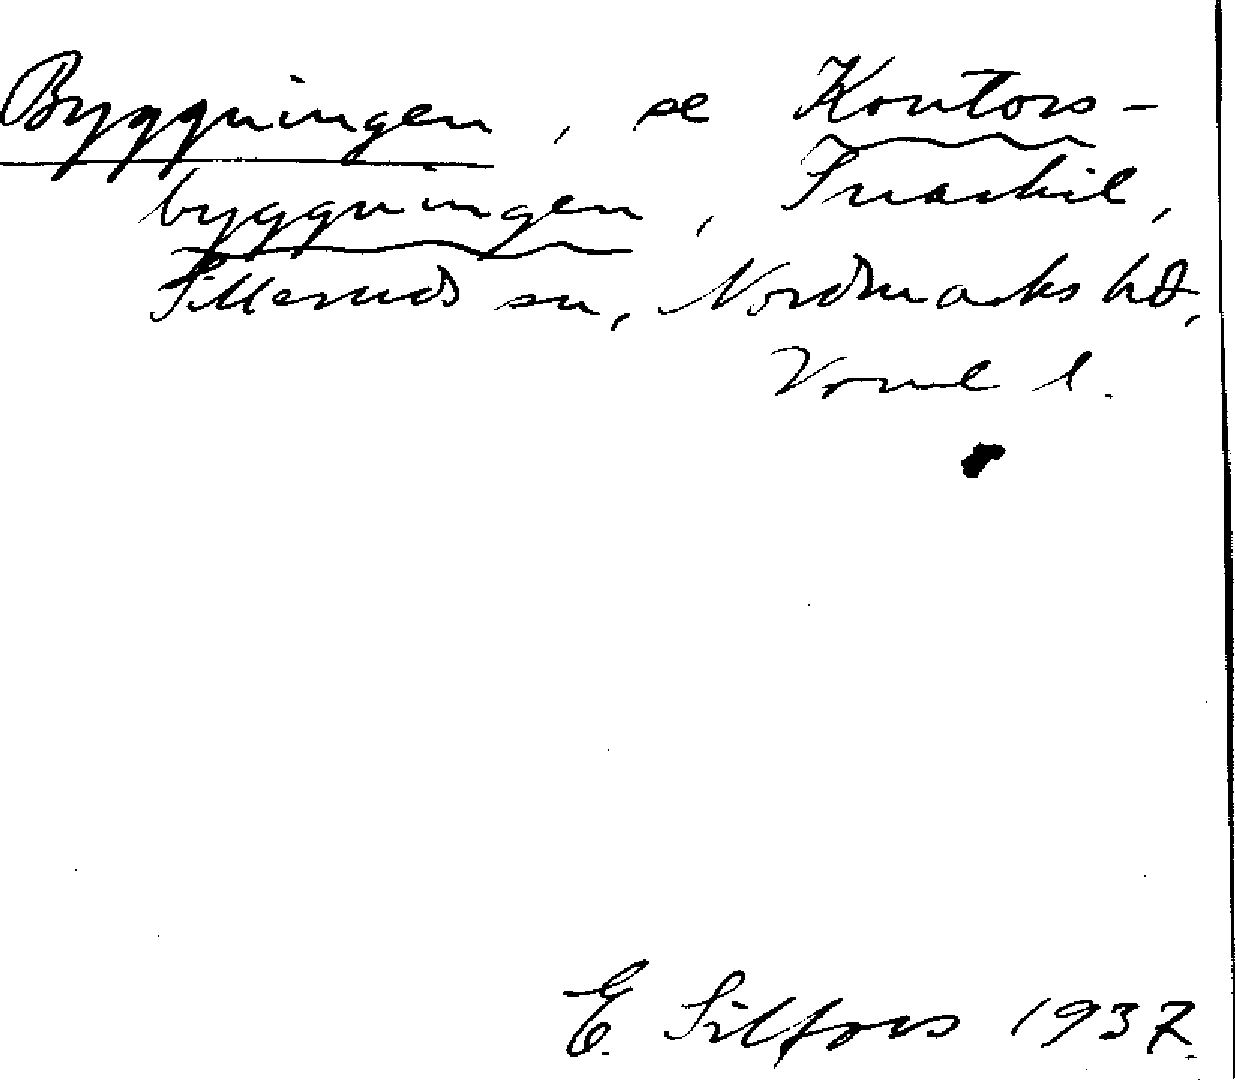 Byggningen, se Kontors-
byggningen, Snarkil,
Silleruds sn, Nordmarks hd,
Värml l.
E. Silfors 1937.